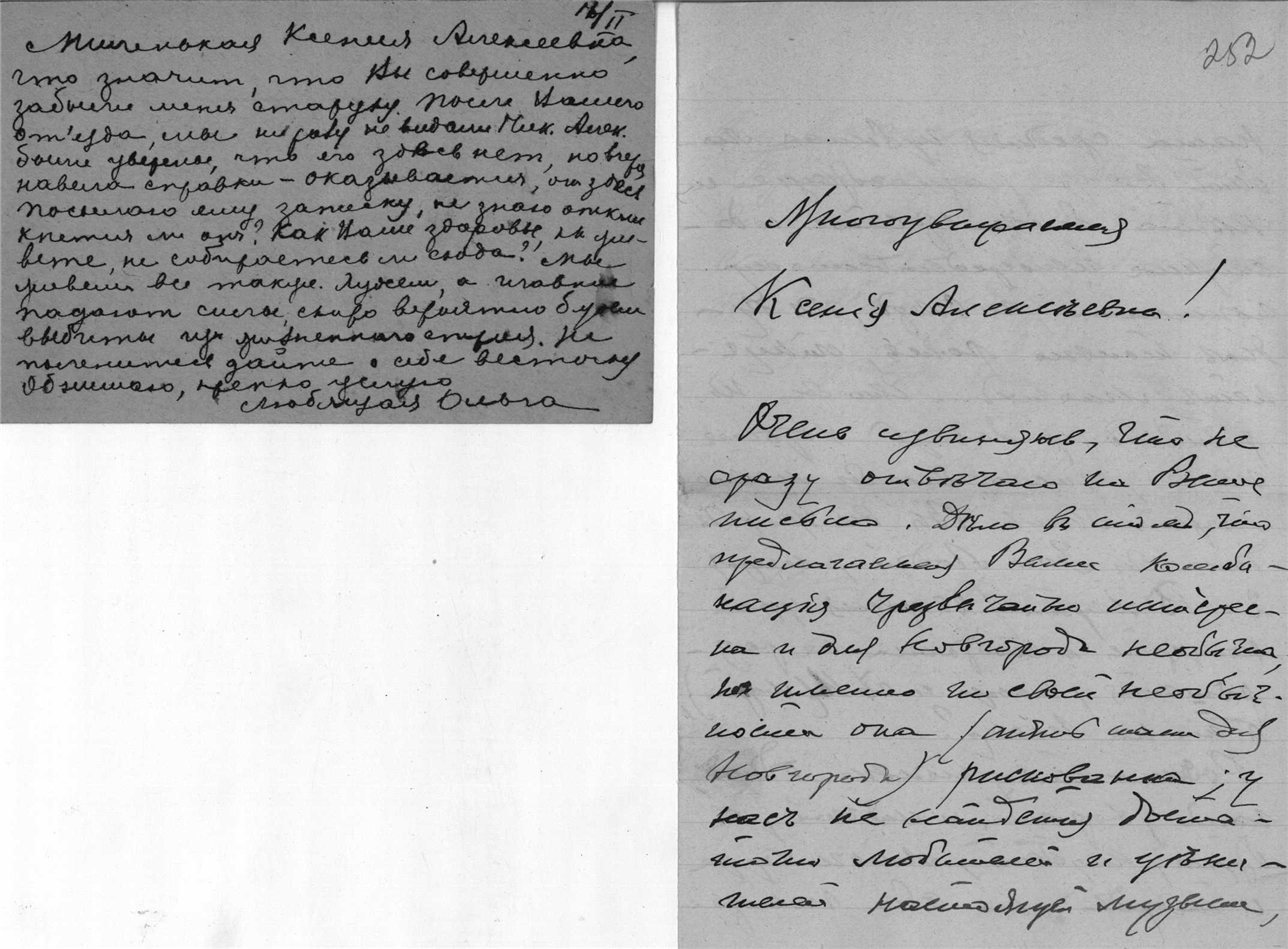 12/II
Миленькая Ксения Алексеевна,
что значит, что Вы совершенно
забыли меня старуху. После Вашего
от'езда, мы ни разу не видали Ник. Алек.
были уверены, что его здесь нет, но вчера
навела справки – оказывается, он здесь
посылаю ему записку, не знаю откли
кнется ли он? Как Ваше здоровье, как жи-
вете, не собираетесь ли сюда?! Мы
живем все также. Худеем, а главное
падают силы, скоро вероятно будем
выбиты из жизненного строя. Не
поленитесь дайте о себе весточку
Обнимаю, крепко целую
Любящая Ольга
252
Многоуважаемая
Ксенія Алексѣевна!
Очень извиняюсь, что не
сразу отвѣчаю на Ваше
письмо. Дѣло въ томъ, что
предлагаемая Вами комби-
нація чрезвычайно интерес-
на и для Новгорода необычна,
но именно по своей необыч-
ности она (опять таки для
Новгорода) рискованна; у
насъ не найдется доста-
точно любителей и цѣни-
телей настоящей музыки,